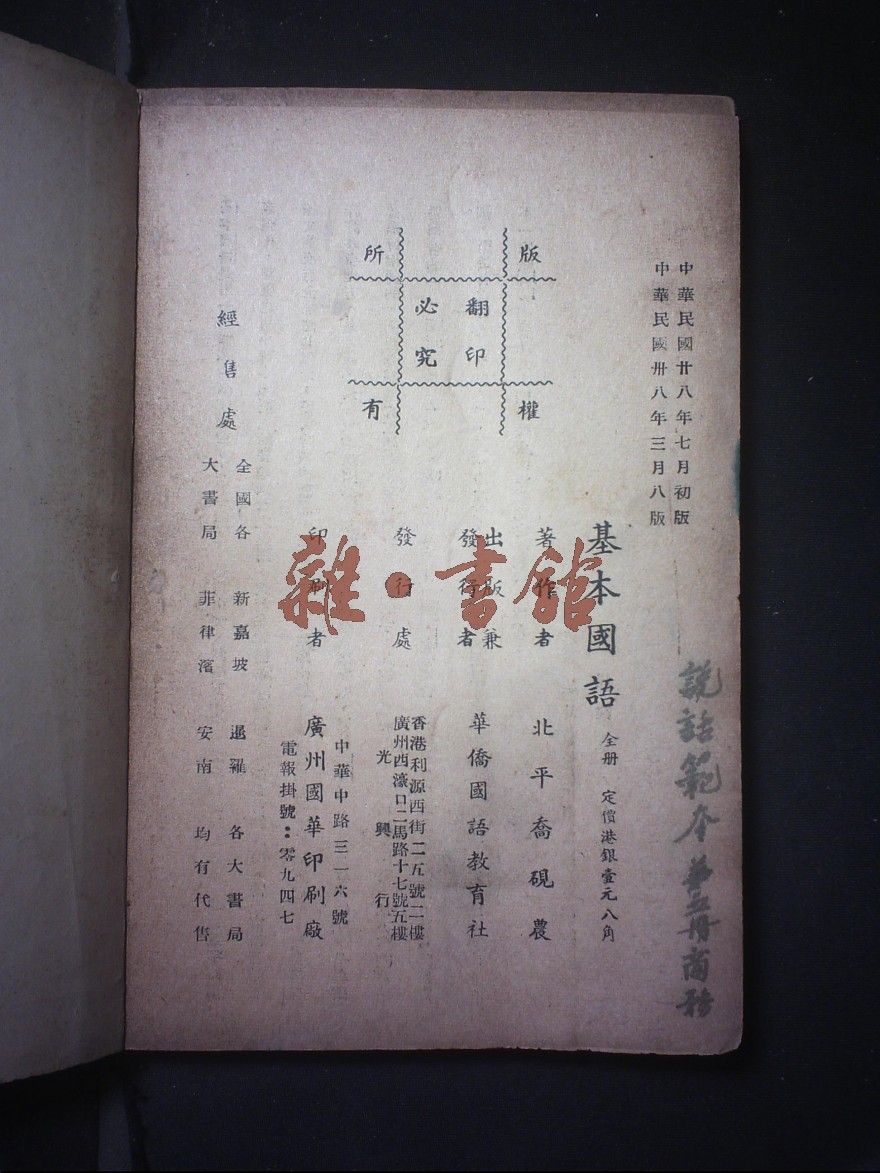 中華民國廿八年七月初版
中華民國卅八年三月八版
版權所有
翻印必究
基本國語 全册 定價港銀壹元八角
著作者 北平喬硯農
出版兼發行者 華僑國語教育社
發行處 香港利源西街二五號二樓
廣州西濠口二馬路十七號五樓
光興行
印刷者 中華中路三一六號
廣州國華印刷廠
電報掛號：零九四七
經售處 全國各大書局
新嘉坡 暹羅 菲律濱 安南 各大書局均有代售
說話範本 第五冊 商務
雜·書館